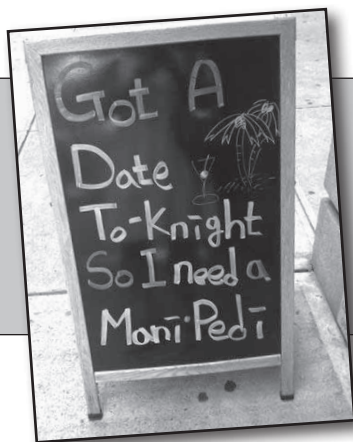 Got A
Date
To-Knight
So I need a
Mani-Pedi